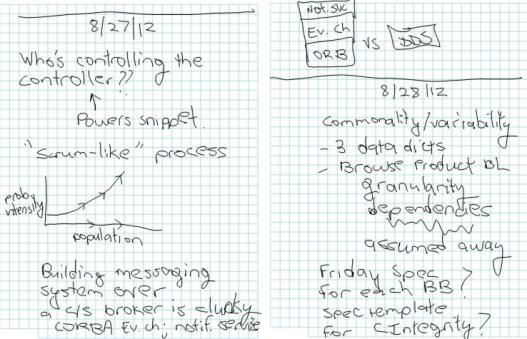 8/27/12
Who's controlling the
controller??
Powers snippet.
"Scrum-like" process
probs
intensity
population
Building messaging
system over
a c/s broker is clunky
CORBA Ev.ch; notif. service
Not. svc
Ev. Ch
ORB
vs
DDS
8/28/12
commonality/variability
- 3 data dicts
- Browse Product BL
granularity
dependencies
assumed away
Friday spec
for each BB?
spec template
for CIntegrity?